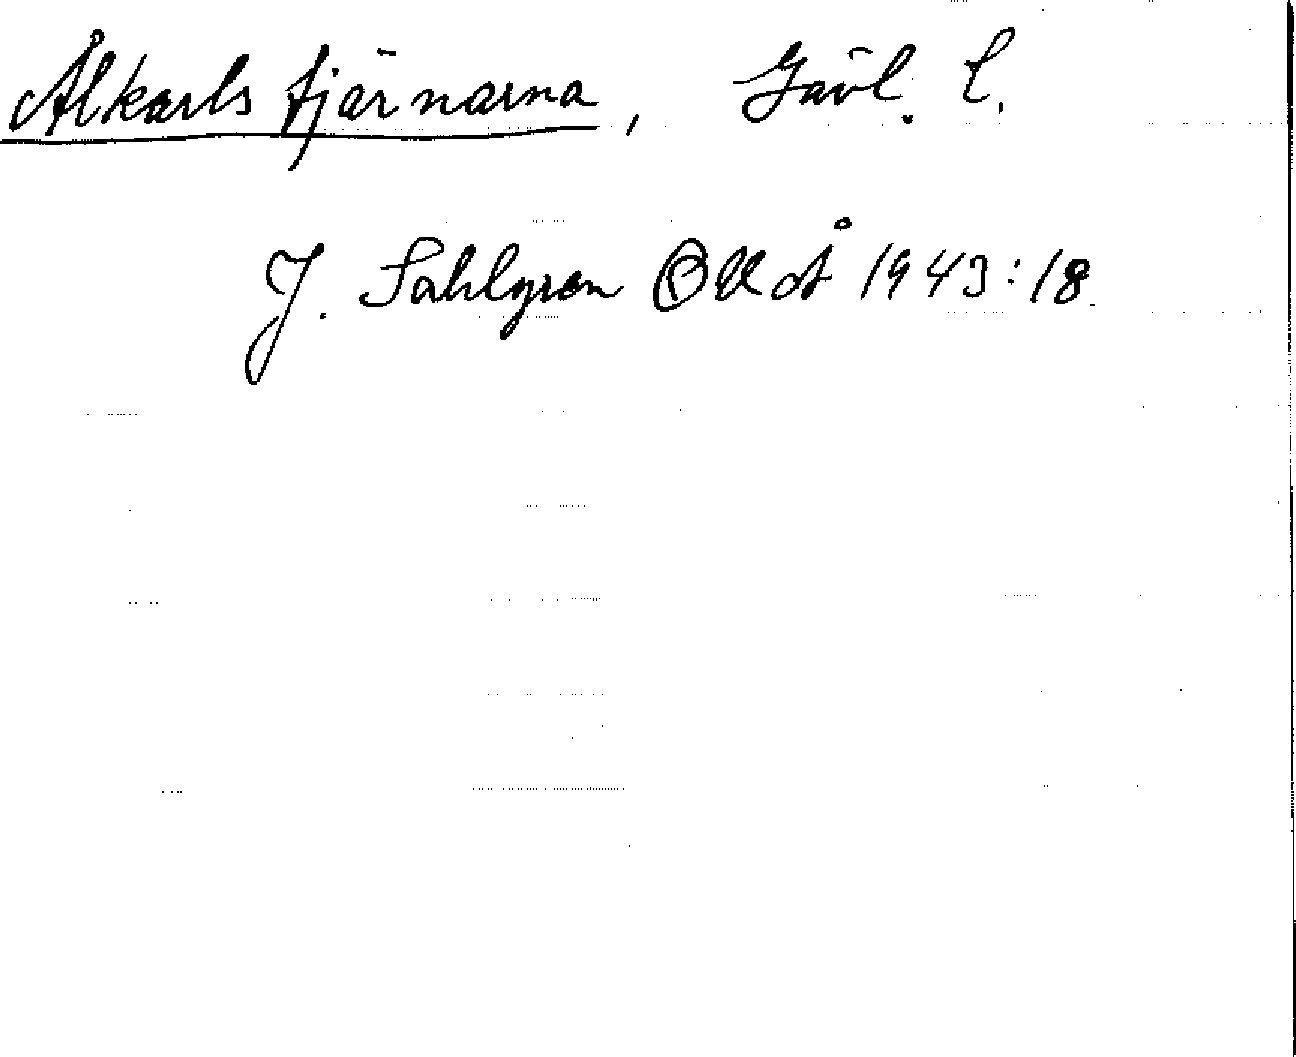 Ålkarlstjärnarna, Gävl. l.
J. Sahlgren OUoÅ 1943:18.